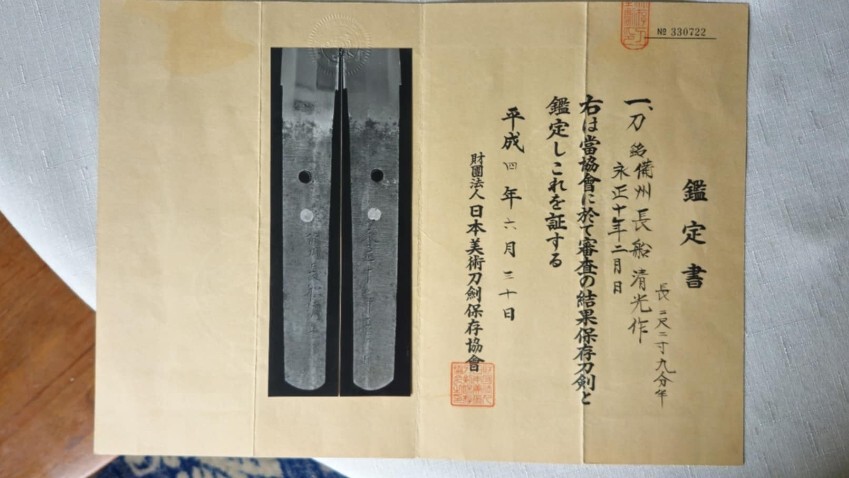 No 330722
鑑定書
一、刀 銘 備州長船清光作
永正十年二月日
長 二尺二寸九分半
右は當協會に於て審査の結果保存刀剣と
鑑定しこれを証する
平成四年六月三十日
財團法人 日本美術刀剣保存協會